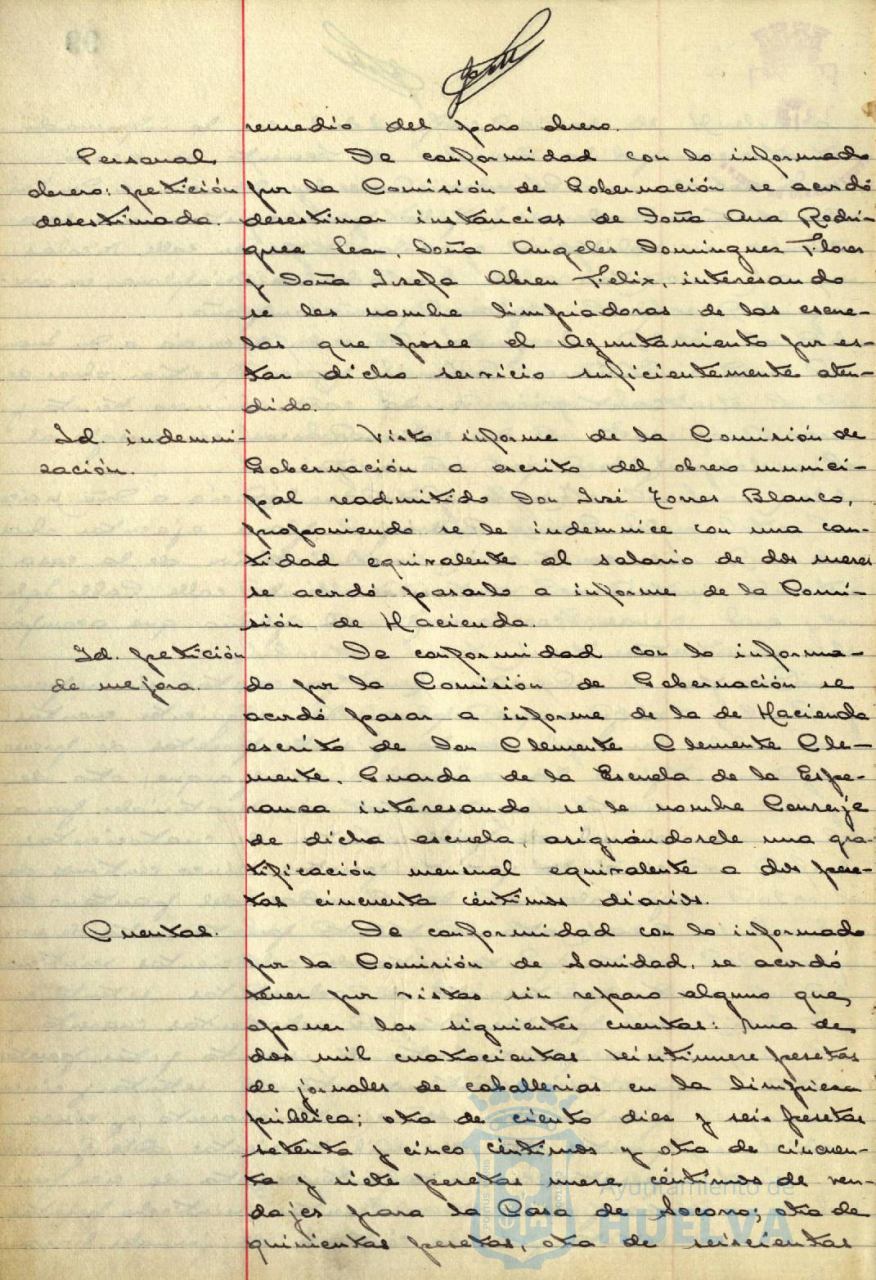 remedio del paro obrero.
Personal
obrero: petición
desestimada.
De conformidad con lo informado
por la Comisión de Gobernación se acordó
desestimar instancias de Doña Ana Rodri-
guez Lea, Doña Angeles Dominguez Flores
y Doña Josefa Abreu Felix, interesando
se les nombre limpiadoras de las escue-
las que posee el Ayuntamiento por es-
tar dicho servicio suficientemente aten-
dido.
Id. indemni-
zación.
Visto informe de la Comisión de
Gobernación a escrito del obrero munici-
pal readmitido Don José Torres Blanco,
proponiendo se le indemnice con una can-
tidad equivalente al salario de dos meses
se acordó pasarlo a informe de la Comi-
sión de Hacienda.
Id. petición
de mejora.
De conformidad con lo informa-
do por la Comisión de Gobernación se
acordó pasar a informe de la de Hacienda
escrito de Don Clemente Clemente Cle-
mente, Guarda de la Escuela de la Espe-
ranza interesando se le nombre Conserje
de dicha escuela, asignándosele una gra-
tificación mensual equivalente a dos pese-
tas cincuenta céntimos diarios.
Cuentas.
De conformidad con lo informado
por la Comisión de Sanidad, se acordó
tener por vistas sin reparo alguno que
oponer las siguientes cuentas: una de
dos mil cuatocientas veintinueve pesetas
de jornales de caballerias en la limpieza
pública; otra de ciento diez y seis pesetas
setenta y cinco céntimos y otra de cincuen-
ta y siete pesetas nueve céntimos de ven-
dajes para la Casa de Socorro; otra de
quinientas pesetas, otra de seiscientas
Ayuntamiento de
HUELVA